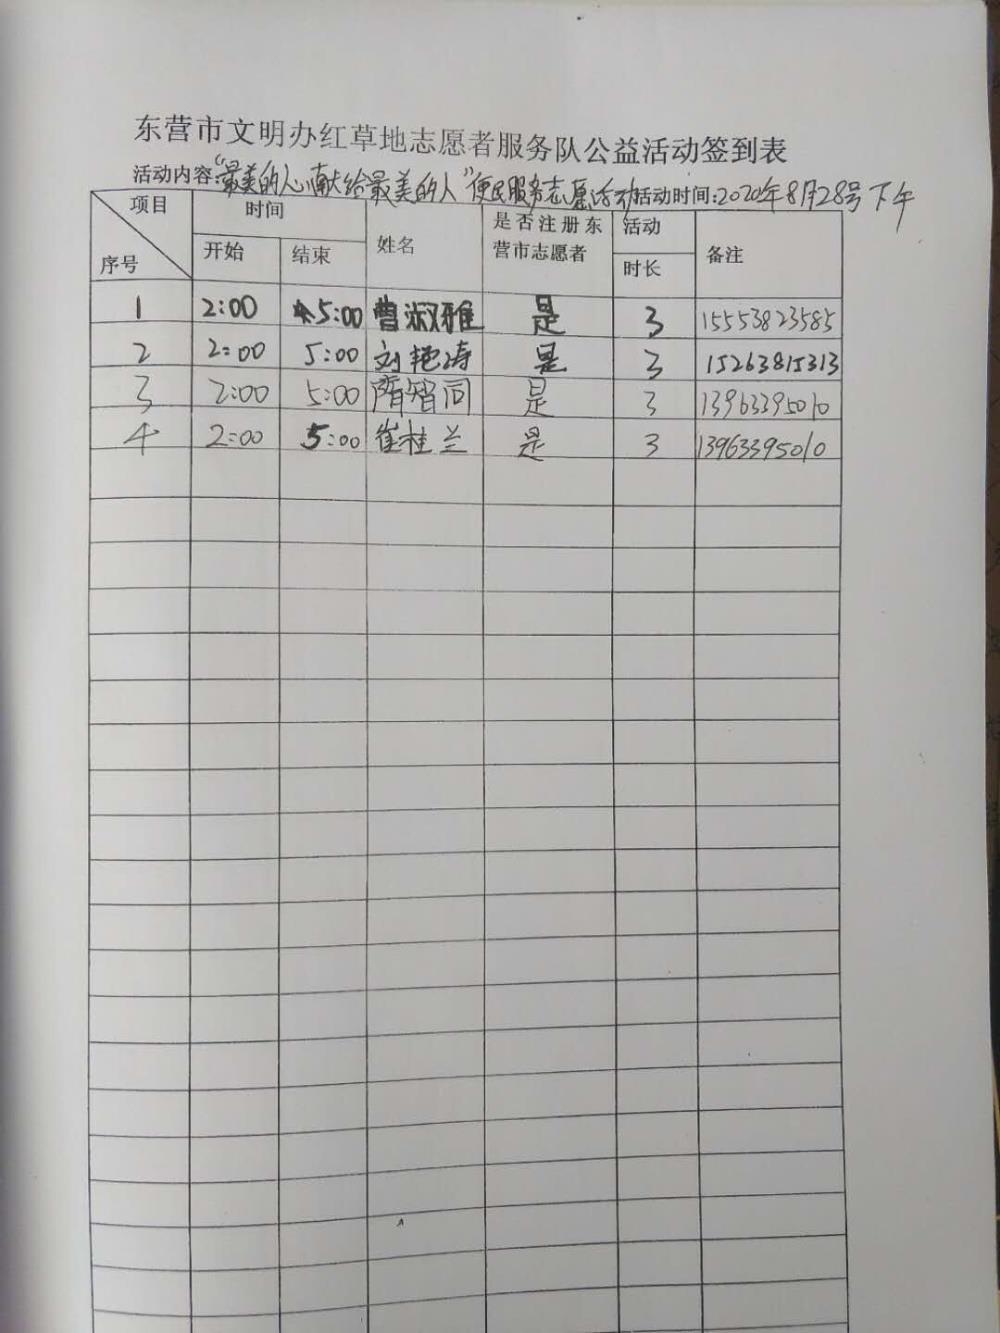 东营市文明办红草地志愿者服务队公益活动签到表
活动内容:"最美的人心献给最美的人"便民服务志愿活动 活动时间:2020年8月28号下午
项目 时间 姓名 是否注册东营市志愿者 活动时长 备注
序号 开始 结束
1 2:00 5:00 曹淑雅 是 3 15553823585
2 2:00 5:00 刘艳涛 是 3 15263815313
3 2:00 5:00 隋智同 是 3 13963395010
4 2:00 5:00 崔桂兰 是 3 13963395010